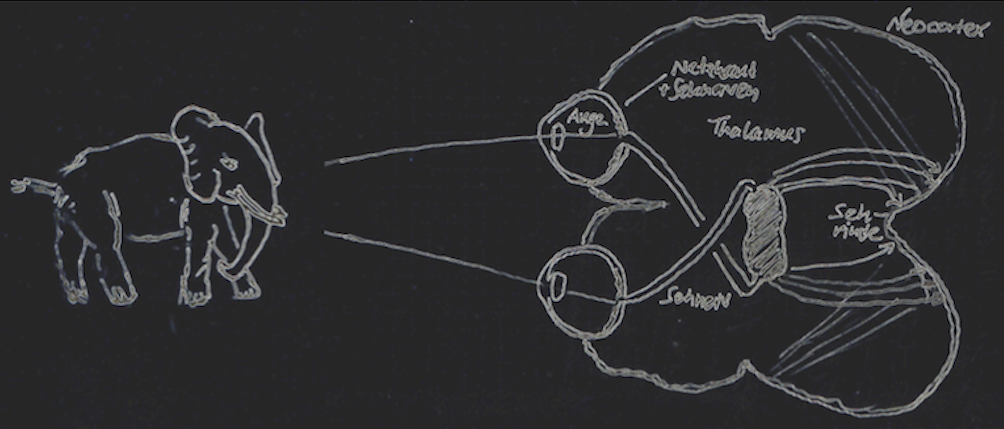 Neocortex
Netzhaut
+ Sehnerven
Auge
Thalamus
Seh-
rinde
Sehnerv